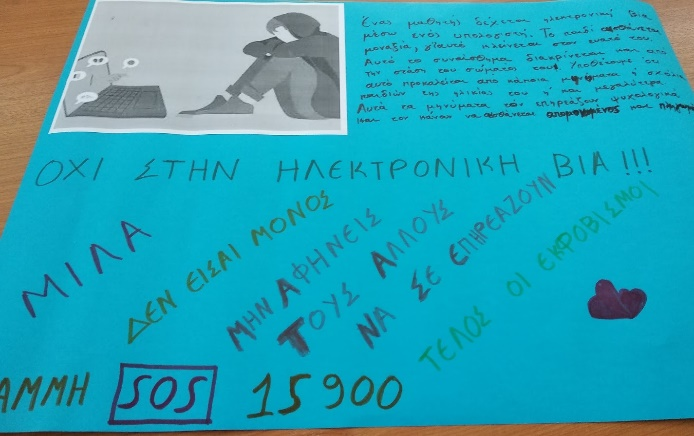 Ένας μαθητής δέχεται ηλεκτρονική βία
μέσω ενός υπολογιστή. Το παιδί αισθάνεται
μοναξιά, γι'αυτό κλείνεται στον εαυτό του.
Αυτό το συναίσθημα διακρίνεται και από
την στάση του σώματος του. Υποθέτουμε ότι
αυτό προκαλείται από κάποια μηνύματα ή σχόλια
παιδιών της ηλικίας του ή και μεγαλύτερα.
Αυτά τα μηνύματα τον επηρεάζουν ψυχολογικά
και τον κάνουν να αισθάνεται απομονωμένος και
ΟΧΙ ΣΤΗΝ ΗΛΕΚΤΡΟΝΙΚΗ ΒΙΑ !!!
ΜΙΛΑ
ΔΕΝ ΕΙΣΑΙ ΜΟΝΟΣ
ΜΗΝ ΑΦΗΝΕΙΣ
ΤΟΥΣ ΑΛΛΟΥΣ
ΝΑ ΣΕ ΕΠΗΡΕΑΖΟΥΝ
ΤΕΛΟΣ ΟΙ ΕΚΦΟΒΙΣΜΟΙ
ΑΜΜΗ SOS 15900